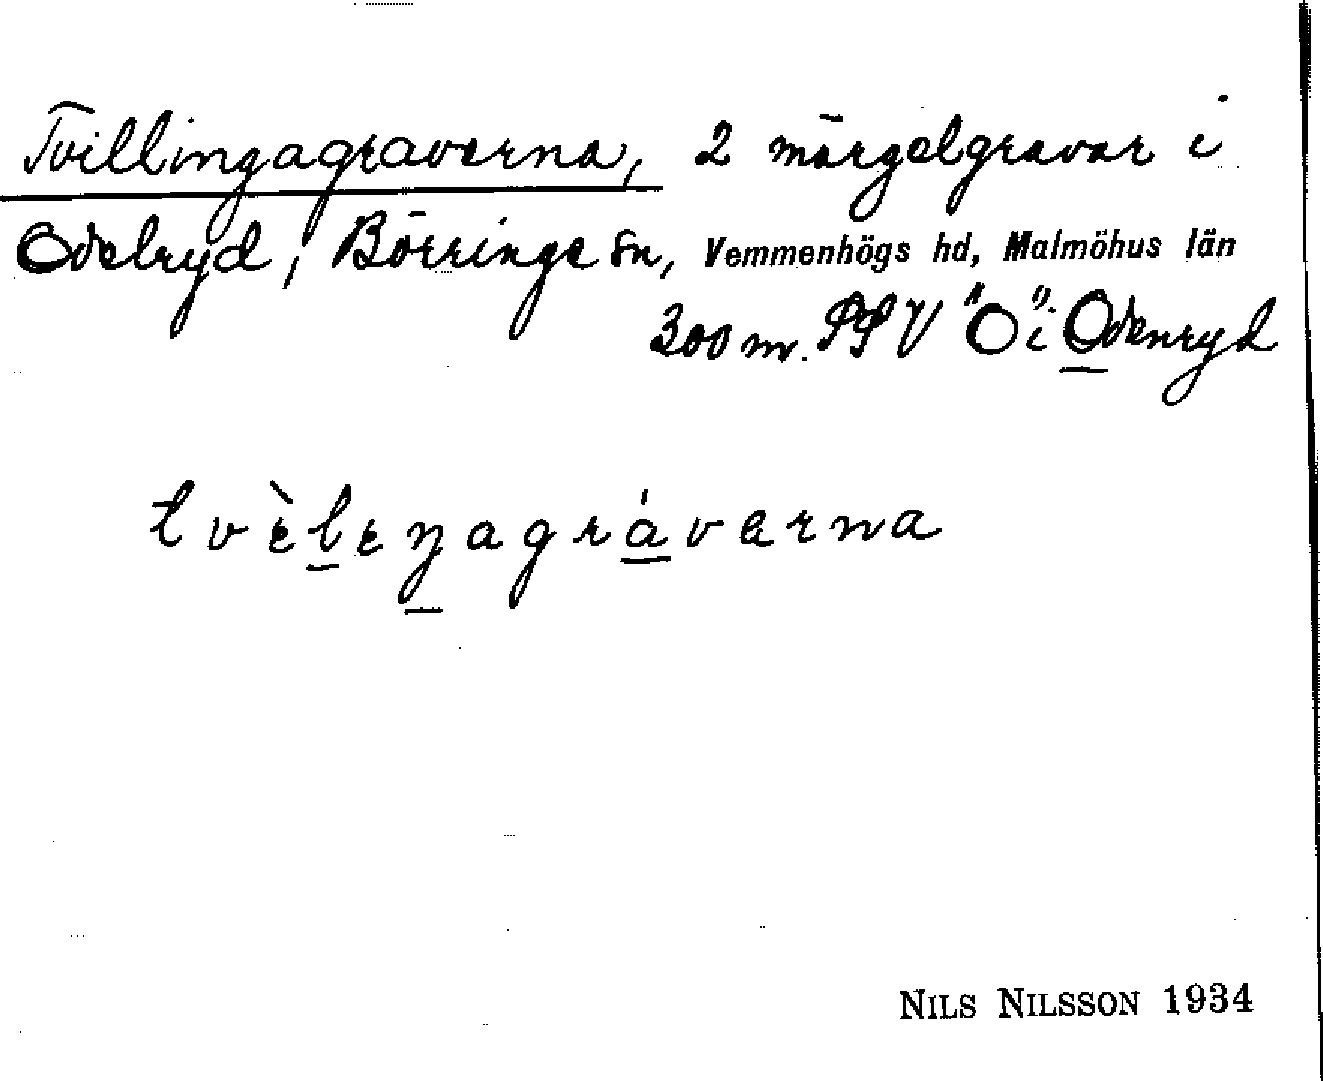 Tvillingagraverna, 2 märgelgravar i
Odelryd, Börringe sn, Vemmenhögs hd, Malmöhus län
300 m. SSV "O" i Odenryd
tvèleŋagráverna
NILS NILSSON 1934